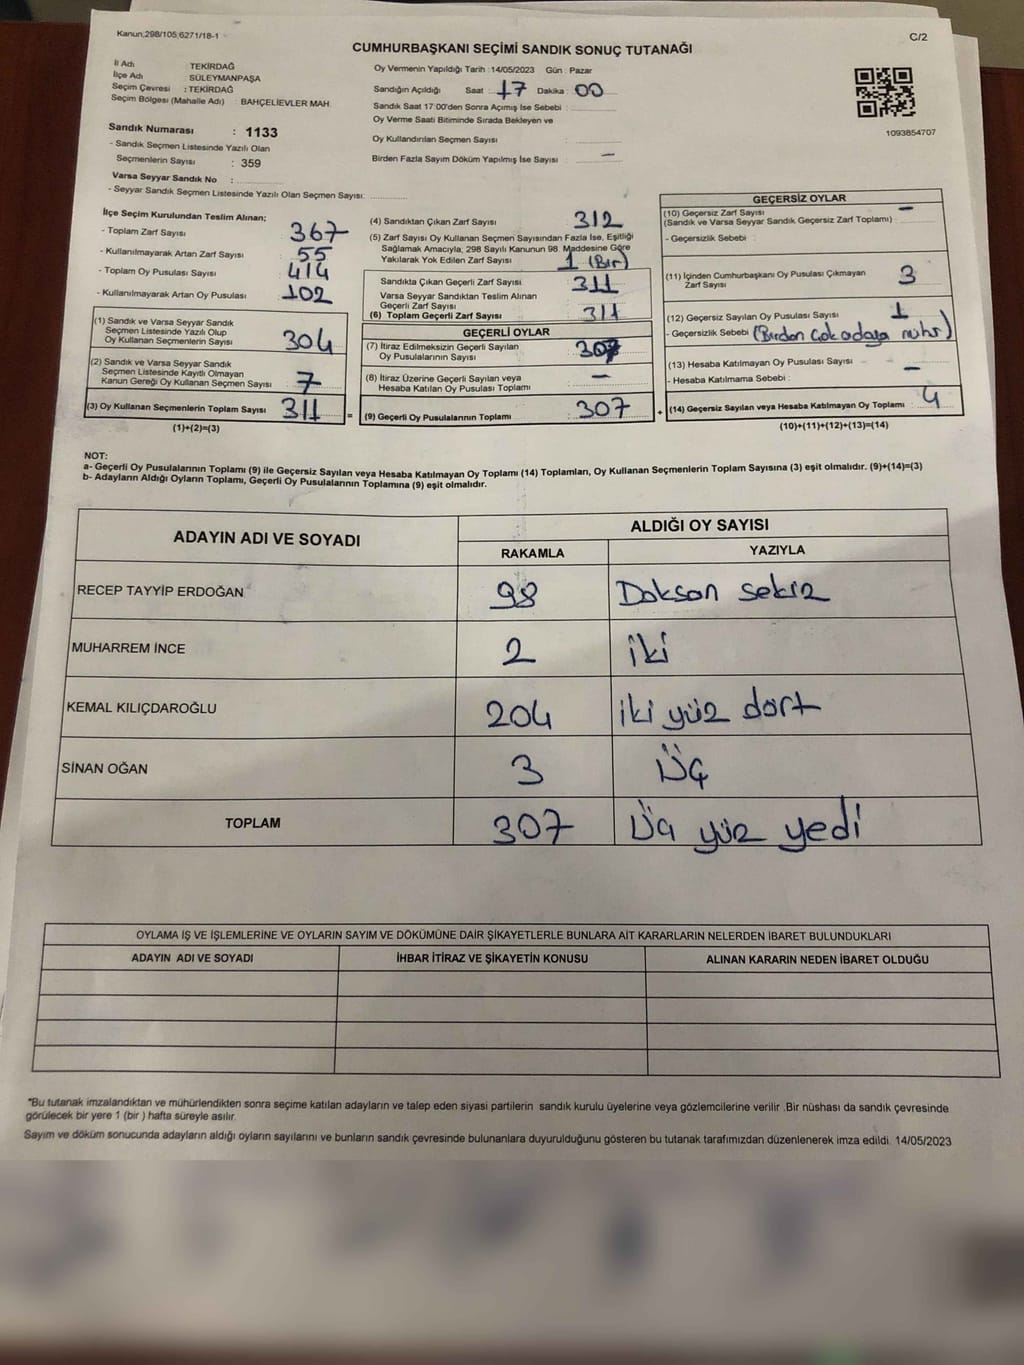 Kanun;298/105;6271/18-1
C/2
CUMHURBAŞKANI SEÇİMİ SANDIK SONUÇ TUTANAĞI
İl Adı TEKİRDAĞ
İlçe Adı SÜLEYMANPAŞA
Seçim Çevresi : TEKİRDAĞ
Seçim Bölgesi (Mahalle Adı) : BAHÇELİEVLER MAH.
Sandık Numarası : 1133
- Sandık Seçmen Listesinde Yazılı Olan
Seçmenlerin Sayısı : 359
Varsa Seyyar Sandık No :
- Seyyar Sandık Seçmen Listesinde Yazılı Olan Seçmen Sayısı:
Oy Vermenin Yapıldığı Tarih :14/05/2023 Gün : Pazar
Sandığın Açıldığı Saat : 17 Dakika : 00
Sandık Saat 17:00'den Sonra Açımış İse Sebebi :
Oy Verme Saati Bitiminde Sırada Bekleyen ve
Oy Kullandırılan Seçmen Sayısı :
Birden Fazla Sayım Döküm Yapılmış İse Sayısı : —
1093854707
İlçe Seçim Kurulundan Teslim Alınan;
- Toplam Zarf Sayısı 367
- Kullanılmayarak Artan Zarf Sayısı 55
- Toplam Oy Pusulası Sayısı 414
- Kullanılmayarak Artan Oy Pusulası 102
(1) Sandık ve Varsa Seyyar Sandık
Seçmen Listesinde Yazılı Olup
Oy Kullanan Seçmenlerin Sayısı 304
(2) Sandık ve Varsa Seyyar Sandık
Seçmen Listesinde Kayıtlı Olmayan
Kanun Gereği Oy Kullanan Seçmen Sayısı 7
(3) Oy Kullanan Seçmenlerin Toplam Sayısı 311
(1)+(2)=(3)
(4) Sandıktan Çıkan Zarf Sayısı 312
(5) Zarf Sayısı Oy Kullanan Seçmen Sayısından Fazla İse, Eşitliği
Sağlamak Amacıyla, 298 Sayılı Kanunun 98. Maddesine Göre
Yakılarak Yok Edilen Zarf Sayısı : 1 (Bir)
Sandıkta Çıkan Geçerli Zarf Sayısı 311
Varsa Seyyar Sandıktan Teslim Alınan
Geçerli Zarf Sayısı
(6) Toplam Geçerli Zarf Sayısı 311
=
GEÇERLİ OYLAR
(7) İtiraz Edilmeksizin Geçerli Sayılan
Oy Pusulalarının Sayısı : 307
(8) İtiraz Üzerine Geçerli Sayılan veya
Hesaba Katılan Oy Pusulası Toplamı : —
(9) Geçerli Oy Pusulalarının Toplamı : 307
+
GEÇERSİZ OYLAR
(10) Geçersiz Zarf Sayısı —
(Sandık ve Varsa Seyyar Sandık Geçersiz Zarf Toplamı) :
- Geçersizlik Sebebi :
(11) İçinden Cumhurbaşkanı Oy Pusulası Çıkmayan
Zarf Sayısı : 3
(12) Geçersiz Sayılan Oy Pusulası Sayısı : 1
- Geçersizlik Sebebi : (Birden Çok adaya mühr)
(13) Hesaba Katılmayan Oy Pusulası Sayısı : —
- Hesaba Katılmama Sebebi :
(14) Geçersiz Sayılan veya Hesaba Katılmayan Oy Toplamı : 4
(10)+(11)+(12)+(13)=(14)
NOT:
a- Geçerli Oy Pusulalarının Toplamı (9) ile Geçersiz Sayılan veya Hesaba Katılmayan Oy Toplamı (14) Toplamları, Oy Kullanan Seçmenlerin Toplam Sayısına (3) eşit olmalıdır. (9)+(14)=(3)
b- Adayların Aldığı Oyların Toplamı, Geçerli Oy Pusulalarının Toplamına (9) eşit olmalıdır.
ADAYIN ADI VE SOYADI ALDIĞI OY SAYISI
RAKAMLA YAZIYLA
RECEP TAYYİP ERDOĞAN 98 Doksan sekiz
MUHARREM İNCE 2 iki
KEMAL KILIÇDAROĞLU 204 iki yüz dört
SİNAN OĞAN 3 Üç
TOPLAM 307 Üç yüz yedi
OYLAMA İŞ VE İŞLEMLERİNE VE OYLARIN SAYIM VE DÖKÜMÜNE DAİR ŞİKAYETLERLE BUNLARA AİT KARARLARIN NELERDEN İBARET BULUNDUKLARI
ADAYIN ADI VE SOYADI İHBAR İTİRAZ VE ŞİKAYETİN KONUSU ALINAN KARARIN NEDEN İBARET OLDUĞU
*Bu tutanak imzalandıktan ve mühürlendikten sonra seçime katılan adayların ve talep eden siyasi partilerin sandık kurulu üyelerine veya gözlemcilerine verilir .Bir nüshası da sandık çevresinde
görülecek bir yere 1 (bir ) hafta süreyle asılır.
Sayım ve döküm sonucunda adayların aldığı oyların sayılarını ve bunların sandık çevresinde bulunanlara duyurulduğunu gösteren bu tutanak tarafımızdan düzenlenerek imza edildi. 14/05/2023